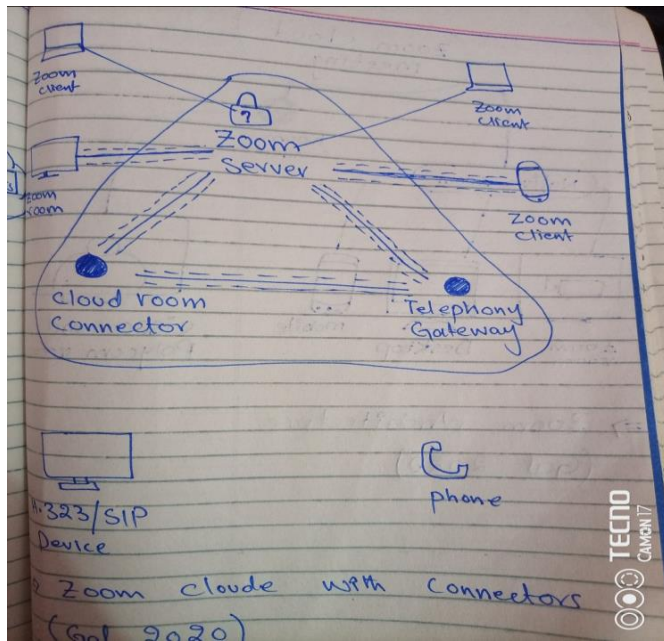 Zoom
client
Zoom
client
?
Zoom
Server
zoom
room
Zoom
client
cloud room
Connector
Telephony
Gateway
H.323/SIP
Device
phone
Zoom cloude with connectors
(Gal 2020)
TECNO
CAMON 17